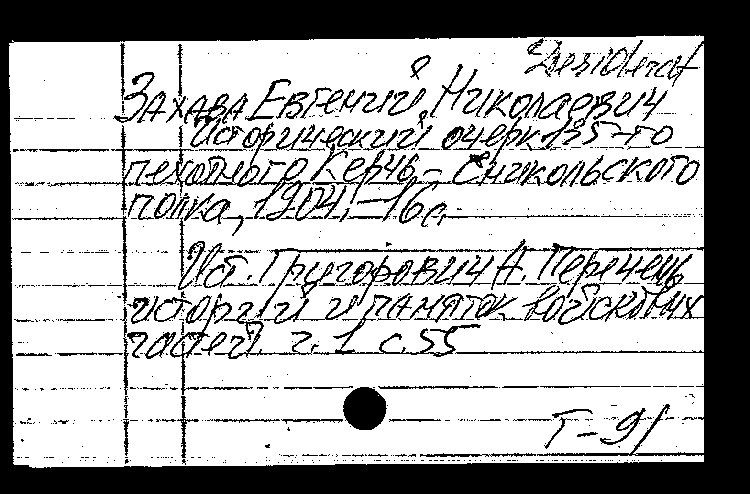 Desiderat
?
Захава Евгений Николаевич
Исторический очерк 135-го
пехотного Керчь-Еникольского
полка, 1904.-16с.
Ист. Григорович А. Перечень
историй и памяток войсковых
частей. ч. 1 с. 55
Т-91